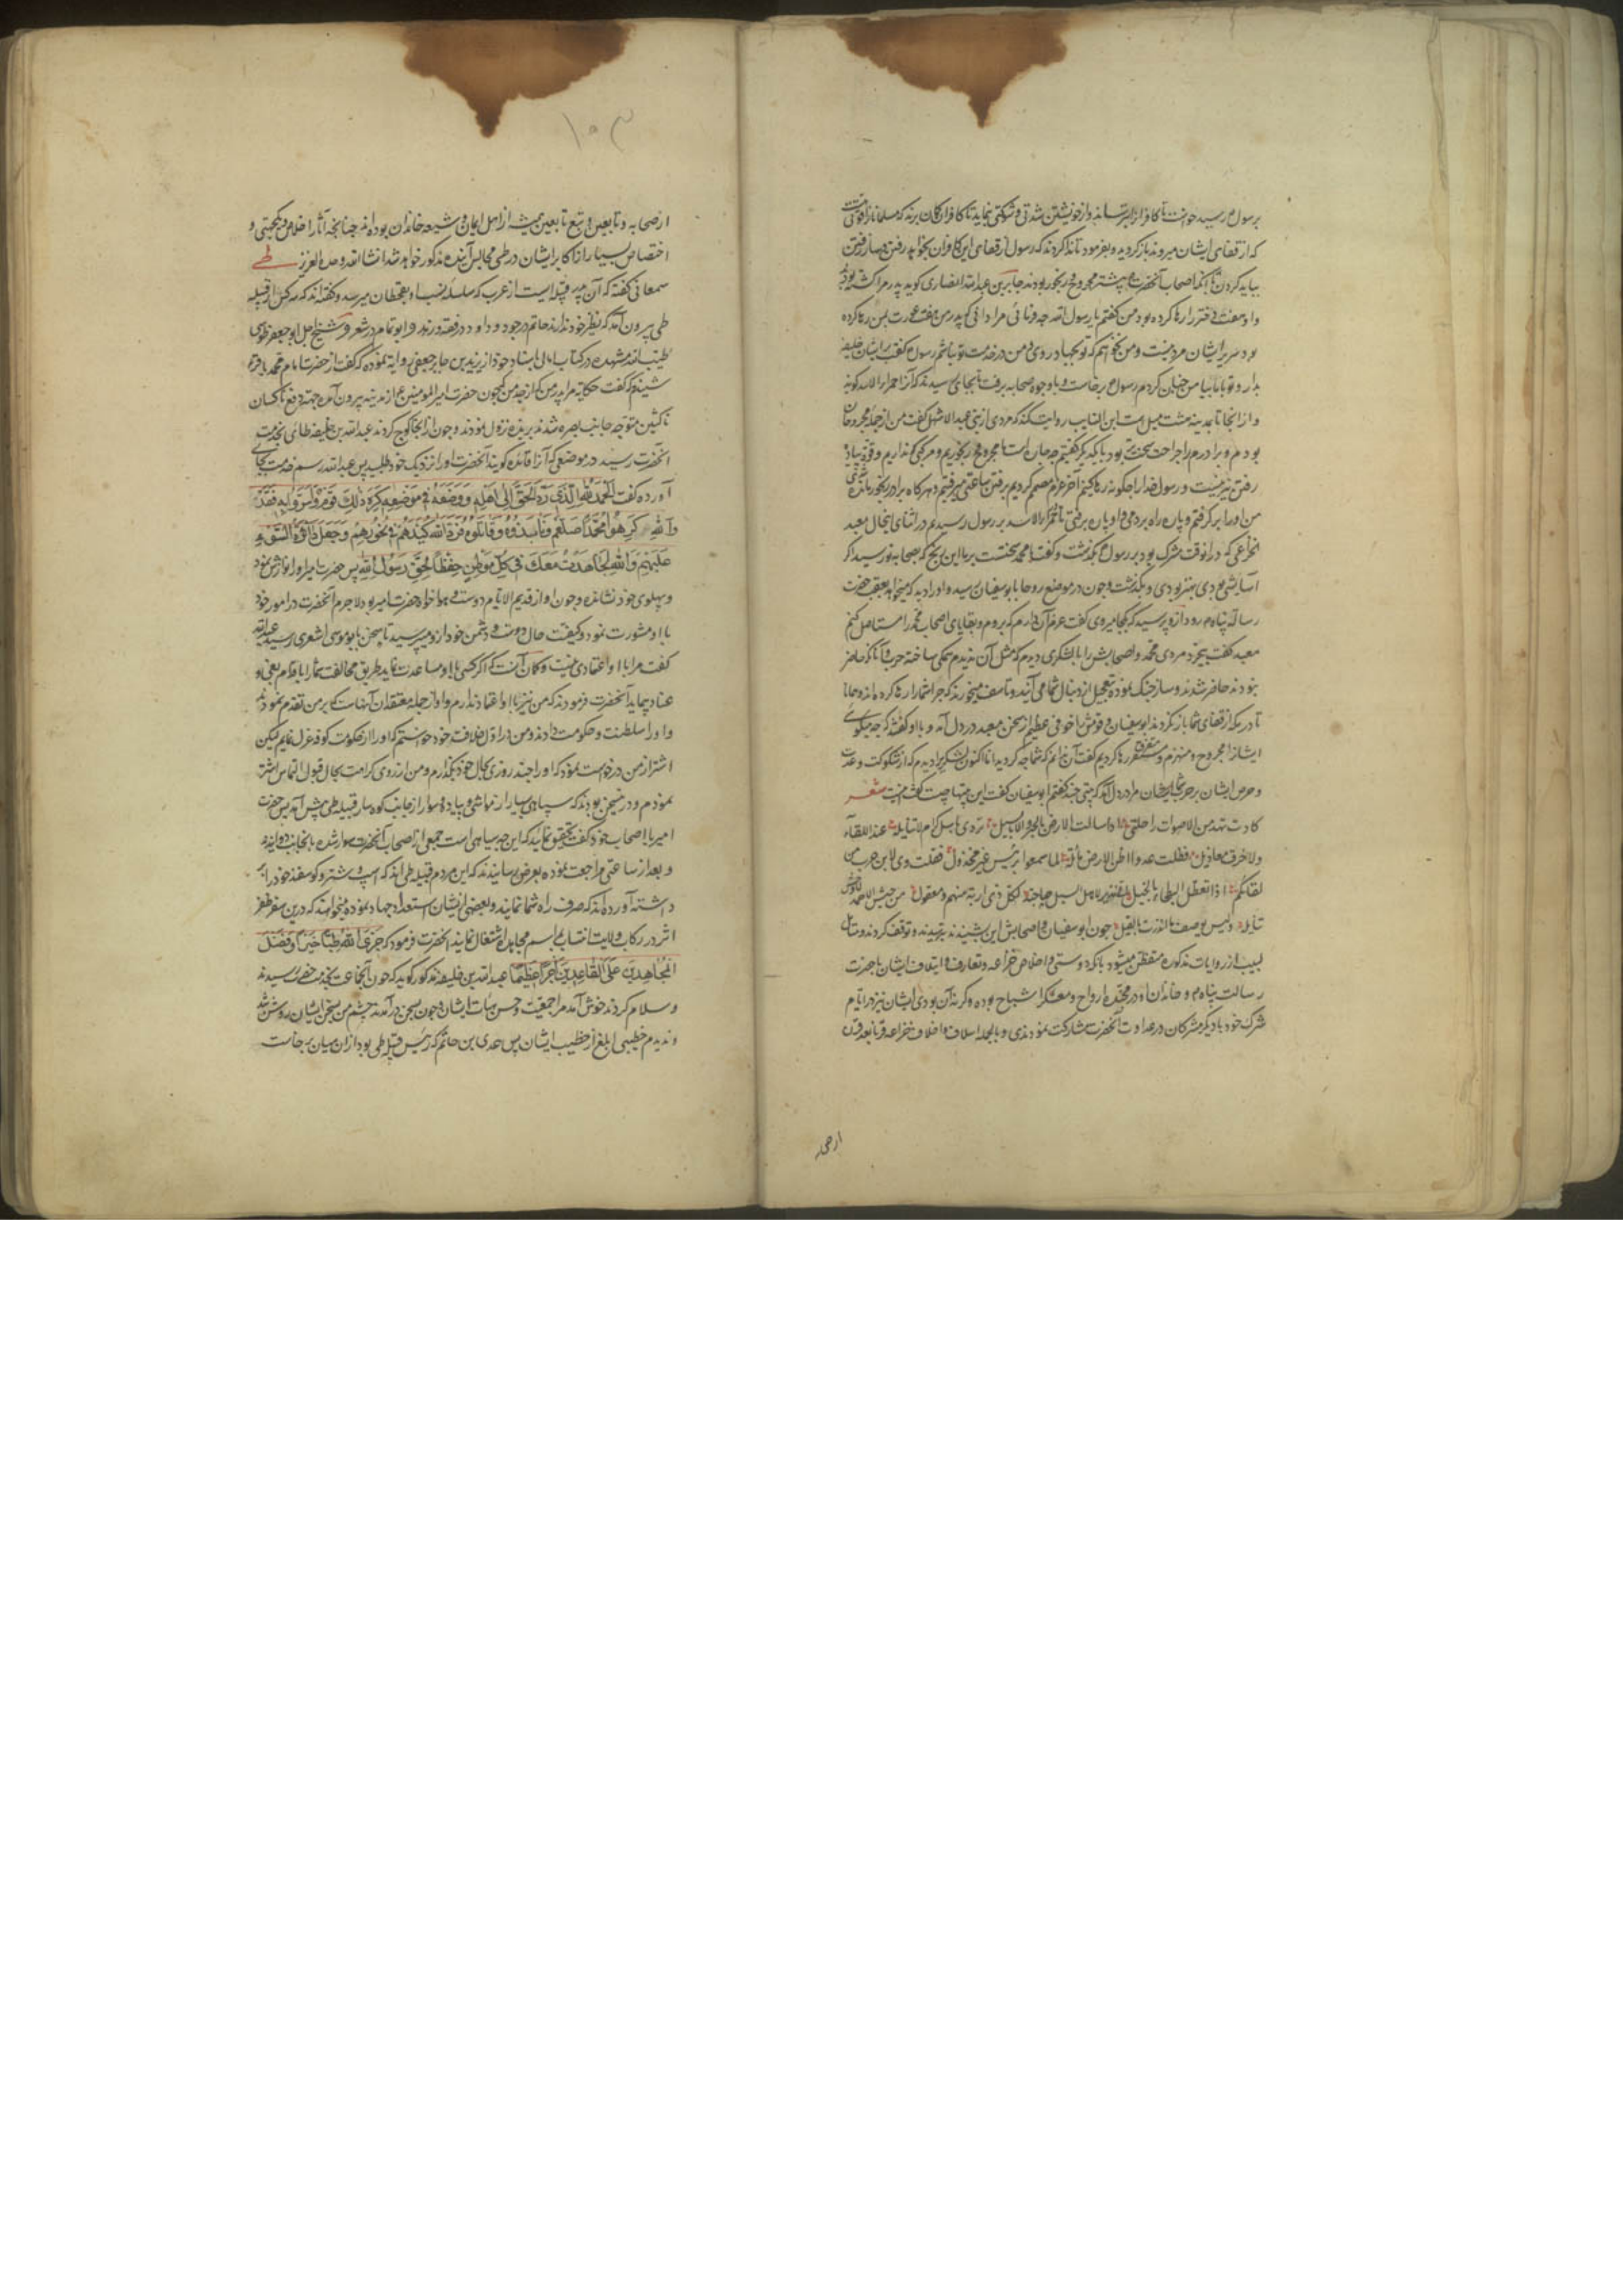 برسول رسید خواست تا کافران را بترساند و از خویشتن شدتی و شوکتی نماید تا کافران گمان برند که مسلمانان را قوتی هست
که از قفای ایشان میروند باز گردید و بفرمود تا ندا کردند که رسول از قفای این کافران بخواهد رفتن و ساز رفتن
بباید کردن تا آنکه اصحاب آنحضرت بیشتر مجروح و رنجور بودند جابر بن عبدالله انصاری گوید پدر مرا کشته بودند
و او هفت دختر را رها کرده بود من گفتم یا رسول الله چه فرمائی مرا دانی که پدر من هفت عورت بمن رها کرده
و در سر ایشان مرد نیست و من نخواهم که تو بجهاد روی و من در خدمت تو نباشم رسول گفت بر ایشان خلیفه
بدار و تو با ما بیا من چنان کردم رسول برخاست و با وجوه صحابه برفت تا بجای رسیدند که آنرا حمراء الاسد گویند
و از آنجا تا مدینه هشت میل است ابن السایب روایت کند که مردی از بنی عبد الاشهل گفت من از جمله مجروحان
بودم و برادرم را جراحت سخت‌تر بود با یکدیگر گفتیم چه جان است ما مجروح و رنجوریم و مرکبی نداریم و قوة پیاده
رفتن نیز نیست و رسول خدا را چگونه رها کنیم آخر عزم مصمم کردیم برفتن ساعتی میرفتیم و هرگاه برادر رنجور مانده شدی
من او را برگرفتم و پاره راه بردمی و او پاره برفتی تا بحمراء الاسد بر رسول رسیدیم در اثنای اینحال معبد
الخزاعی که در آنوقت مشرک بود بر رسول بگذشت و گفت یا محمد سختست بر ما این رنج که بصحابه تو رسید اگر
آسایشی بودی بهتر بودی و بگذشت و چون در موضع روحا بابوسفیان رسید و او را دید که میخواهد بعقب حضرت
رسالة پناه رود ازو پرسید که بکجا میروی گفت عزم آن دارم که بروم و بقایای اصحاب محمد را مستاصل کنم
معبد گفت بیخرد مردی محمد و اصحابش را با لشکری دیدم که مثل آن ندیدم همگی ساخته حرب و آنان که حاضر
نبودند حاضر شدند و ساز جنک نموده بتعجیل از دنبال شما می آیند و تاسف میخورند که چرا شما را رها کردند
تا دریکه از قفای شما باز نگردند ابوسفیان و قومش را خوفی عظیم از سخن معبد در دل آمد و با او گفتند که چه میگوی
ایشانرا مجروح و منهزم و متفرق رها کردیم گفت آن ندانم که شما چه کردید اما اکنون لشکری دیدم که از شوکت و عدت
و حرص ایشان بر حرب شما ایشان مرا در دل آمد که بیتی چند گفتم ابوسفیان گفت این بیتها چیست گفت اینست شعر
کادت تهد من الاصوات راحلتی اذا سالت الارض بالجرد الابابیل تردی باسل کرام لا تنابلة عند اللقاء
ولا خرق معازیل فظلت عدوا اظن الارض مائلة لما سمعوا برئیس غیر مخذول فقلت ویل ابن حرب من
لقائکم اذا تغطط البطحاء بالخیل انی نذیر لاهل السیل ضاحیة لکل ذی اربة منهم و معقول من جیش احمد لا وخش
تنابلة ولیس یوصف ما انذرت بالقیل چون ابوسفیان و اصحابش این بشنیدند بترسیدند و توقف کردند و متامل
لبیب از روایات مذکوره متفطن میشود بانکه دوستی و اخلاص خزاعه و تعارف و ایتلاف ایشان با حضرت
رسالت پناه و خاندان او در مجنده ارواح و معسکر اشباح بوده و گرنه آن بودی ایشان نیز در ایام
شرک خود با دیگر مشرکان در عداوت آنحضرت مشارکت نمودندی و بالجمله اسلاف و اخلاف خزاعه قرنا بعد قرن
ازصحا
۱۰۳
ازصحابه و تابعین و تبع تابعین همیشه از اهل ایمان و شیعه خاندان بوده اند چنانچه آثار اخلاص و یکجهتی و
اختصاص بسیار از اکابر ایشان در طی مجالس آینده مذکور خواهد شد انشا الله وحده العزیز طی
سمعانی گفته که آن قبیله است از عرب که سلسله نسب او بقحطان میرسد و گفته اند که سه کس از قبیله
طی بیرون آمد که نظیر خود ندارند حاتم در جود و داود در فقه و زهد و ابو تمام در شعر و شیخ اجل ابو جعفر طوسی
طیب الله مشهده در کتاب امالی باسناد خود از یزید بن جابر جعفی روایة نموده که گفت از حضرت امام محمد باقر ع
شنیدم که گفت حکایة مرا پدر من که از جد من که چون حضرت امیرالمومنین ع از مدینه بیرون آمد جهة دفع ناکسان
ناکثین متوجه جانب بصره شدند بربذه نزول نمودند و چون از آنجا کوچ کردند عبدالله بن خلیفه طائی بخدمت
آنحضرت رسید در موضعی که آنرا فائده گویند آنحضرت او را نزدیک خود طلبید پس عبدالله رسم خدمت بجای
آورده گفت الحمد لله الذی رد الحق الی اهله و وضعه فی موضعه کره ذلک قوم او سروا به فقد
والله کرهوا محمدا صلعم و نابذوه و قاتلوه فرد الله کیدهم فی نحورهم و جعل دائرة السوء
علیهم والله لنجاهدن معک فی کل موطن حفظا لحق رسول الله پس حضرت امیر او را نوازش نمود
و پهلوی خود نشاند و چون او از قدیم الایام دوست و هواخواه حضرت امیر بود لاجرم آنحضرت در امور خود
با او مشورت نمود و کیفیت حال دوست و دشمن خود از او میپرسید تا سخن بابو موسی اشعری رسید عبدالله
گفت مرا با او اعتمادی نیست و گمان آنست که اگر کسی با او مساعدت نماید طریق مخالفت شما را باقدام بغی و
عناد پیماید آنحضرت فرمودند که من نیز با او اعتماد ندارم و او از جمله معتقدان آنهاست که بر من تقدم نمودند
و او را سلطنت و حکومت دادند و من در اول خلافت خود خواستم که او را از حکومت کوفه عزل نمایم لیکن
اشتر از من درخواست نمود که او را چند روزی بحال خود بگذارم و من از روی کراهت بحال قبول التماس اشتر
نمودم و در این سخن بودند که سپاهی بسیار از مواشی و پیاده و سوار از جانب کوهسار قبیله طی پیش آمد پس حضرت
امیر با اصحاب خود گفت تحقیق نمائید که این چه سیاهی است جمعی از اصحاب آنحضرت سوار شده بانجانب دوانیدند
و بعد از ساعتی مراجعت نموده بعرض رسانیدند که این مردم قبیله طی اند که اسپ و شتر و گوسفند خود را بر
داشته آورده اند که صرف راه شما نمایند و بعضی از ایشان استعداد جهاد نموده میخواهند که درین سفر ظفر
اثر در رکاب ولایت انتساب بمراسم مجاهده اشتغال نمایند آنحضرت فرمود که جزی الله طیا خیرا و فضل
المجاهدین علی القاعدین اجرا عظیما عبدالله بن خلیفه مذکور گوید که چون آنجماعت بخدمت حضرت رسیدند
و سلام کردند خوش آمد مرا جمعیت و حسن هیئات ایشان و چون بسخن درآمدند چشم من بسخن ایشان روشن شد
و ندیدم خطیبی ابلغ از خطیب ایشان پس عدی بن حاتم که رئیس قبیله طی بود از آن میان برخاست